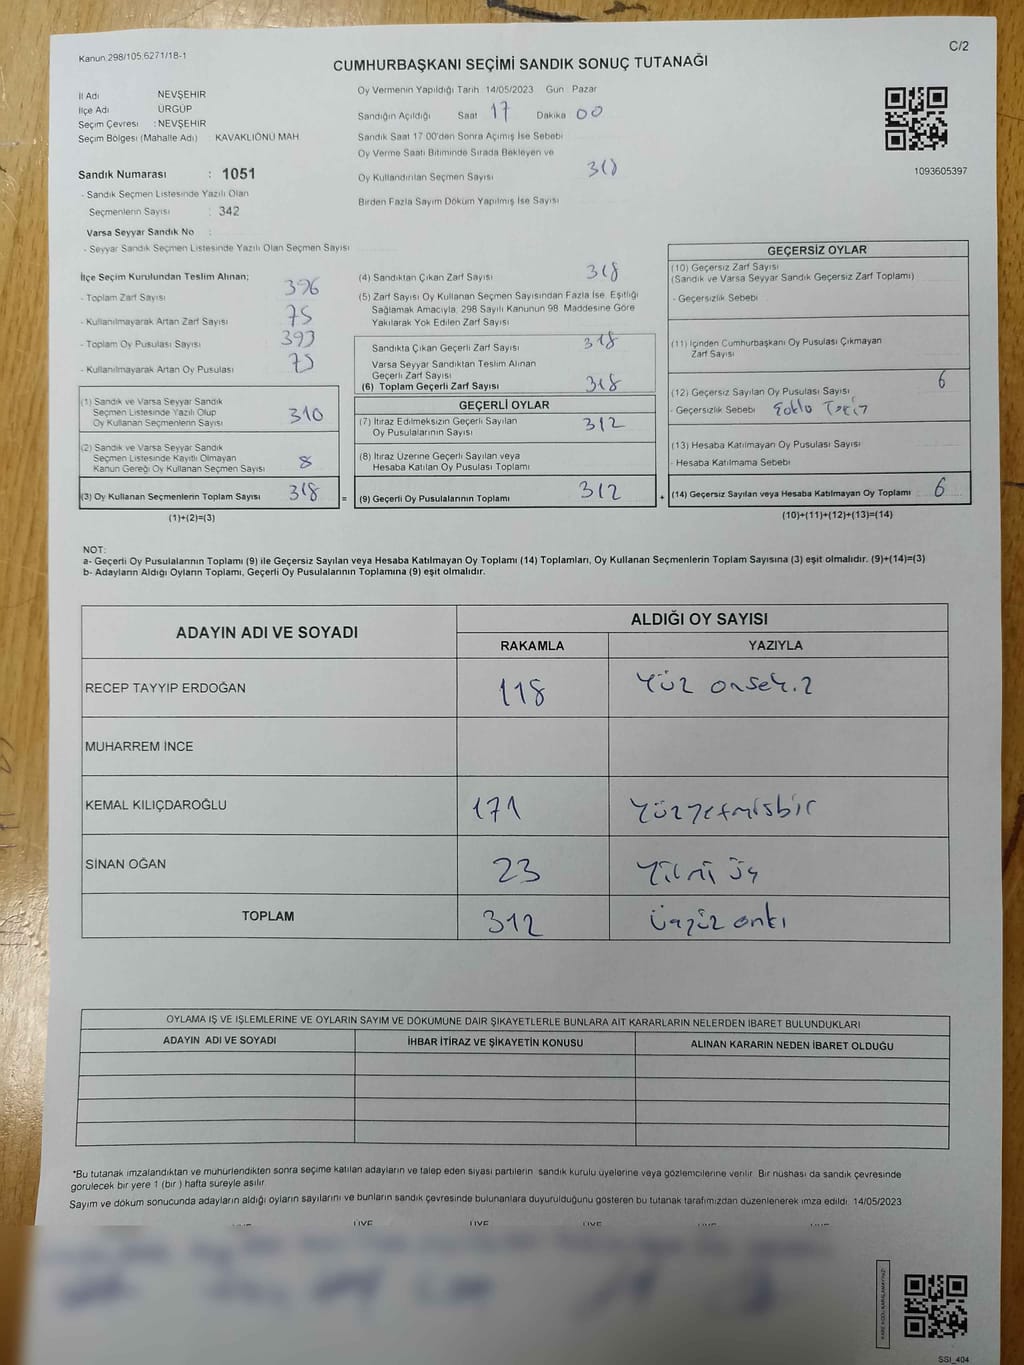 Kanun:298/105,6271/18-1
C/2
CUMHURBAŞKANI SEÇİMİ SANDIK SONUÇ TUTANAĞI
İl Adı NEVŞEHİR
İlçe Adı ÜRGÜP
Seçim Çevresi : NEVŞEHİR
Seçim Bölgesi (Mahalle Adı) KAVAKLIÖNÜ MAH
Sandık Numarası : 1051
- Sandık Seçmen Listesinde Yazılı Olan
Seçmenlerin Sayısı : 342
Varsa Seyyar Sandık No :
- Seyyar Sandık Seçmen Listesinde Yazılı Olan Seçmen Sayısı
Oy Vermenin Yapıldığı Tarih 14/05/2023 Gün Pazar
Sandığın Açıldığı Saat 17 Dakika 00
Sandık Saat 17 00'den Sonra Açımış İse Sebebi
Oy Verme Saati Bitiminde Sırada Bekleyen ve
Oy Kullandırılan Seçmen Sayısı
Birden Fazla Sayım Döküm Yapılmış İse Sayısı
1093605397
İlçe Seçim Kurulundan Teslim Alınan;
- Toplam Zarf Sayısı 396
- Kullanılmayarak Artan Zarf Sayısı 75
- Toplam Oy Pusulası Sayısı 393
- Kullanılmayarak Artan Oy Pusulası 75
(1) Sandık ve Varsa Seyyar Sandık
Seçmen Listesinde Yazılı Olup
Oy Kullanan Seçmenlerin Sayısı 310
(2) Sandık ve Varsa Seyyar Sandık
Seçmen Listesinde Kayıtlı Olmayan
Kanun Gereği Oy Kullanan Seçmen Sayısı 8
(3) Oy Kullanan Seçmenlerin Toplam Sayısı 318 =
(1)+(2)=(3)
(4) Sandıktan Çıkan Zarf Sayısı 318
(5) Zarf Sayısı Oy Kullanan Seçmen Sayısından Fazla İse, Eşitliği
Sağlamak Amacıyla, 298 Sayılı Kanunun 98. Maddesine Göre
Yakılarak Yok Edilen Zarf Sayısı
Sandıkta Çıkan Geçerli Zarf Sayısı 318
Varsa Seyyar Sandıktan Teslim Alınan
Geçerli Zarf Sayısı
(6) Toplam Geçerli Zarf Sayısı 318
GEÇERLİ OYLAR
(7) İtiraz Edilmeksizin Geçerli Sayılan
Oy Pusulalarının Sayısı 312
(8) İtiraz Üzerine Geçerli Sayılan veya
Hesaba Katılan Oy Pusulası Toplamı
(9) Geçerli Oy Pusulalarının Toplamı 312 +
GEÇERSİZ OYLAR
(10) Geçersiz Zarf Sayısı
(Sandık ve Varsa Seyyar Sandık Geçersiz Zarf Toplamı)
- Geçersizlik Sebebi
(11) İçinden Cumhurbaşkanı Oy Pusulası Çıkmayan
Zarf Sayısı
(12) Geçersiz Sayılan Oy Pusulası Sayısı 6
- Geçersizlik Sebebi
(13) Hesaba Katılmayan Oy Pusulası Sayısı
- Hesaba Katılmama Sebebi
(14) Geçersiz Sayılan veya Hesaba Katılmayan Oy Toplamı 6
(10)+(11)+(12)+(13)=(14)
NOT:
a- Geçerli Oy Pusulalarının Toplamı (9) ile Geçersiz Sayılan veya Hesaba Katılmayan Oy Toplamı (14) Toplamları, Oy Kullanan Seçmenlerin Toplam Sayısına (3) eşit olmalıdır. (9)+(14)=(3)
b- Adayların Aldığı Oyların Toplamı, Geçerli Oy Pusulalarının Toplamına (9) eşit olmalıdır.
ADAYIN ADI VE SOYADI
ALDIĞI OY SAYISI
RAKAMLA YAZIYLA
RECEP TAYYIP ERDOĞAN 118 Yüz onsekiz
MUHARREM İNCE
KEMAL KILIÇDAROĞLU 171 Yüzyetmisbir
SİNAN OĞAN 23 Yirmi üç
TOPLAM 312 Üçyüz oniki
OYLAMA İŞ VE İŞLEMLERİNE VE OYLARIN SAYIM VE DÖKÜMÜNE DAİR ŞİKAYETLERLE BUNLARA AİT KARARLARIN NELERDEN İBARET BULUNDUKLARI
ADAYIN ADI VE SOYADI İHBAR İTİRAZ VE ŞİKAYETİN KONUSU ALINAN KARARIN NEDEN İBARET OLDUĞU
*Bu tutanak imzalandıktan ve mühürlendikten sonra seçime katılan adayların ve talep eden siyasi partilerin sandık kurulu üyelerine veya gözlemcilerine verilir. Bir nüshası da sandık çevresinde
görülecek bir yere 1 (bir ) hafta süreyle asılır
Sayım ve döküm sonucunda adayların aldığı oyların sayılarını ve bunların sandık çevresinde bulunanlara duyurulduğunu gösteren bu tutanak tarafımızdan düzenlenerek imza edildi. 14/05/2023
SSI_404